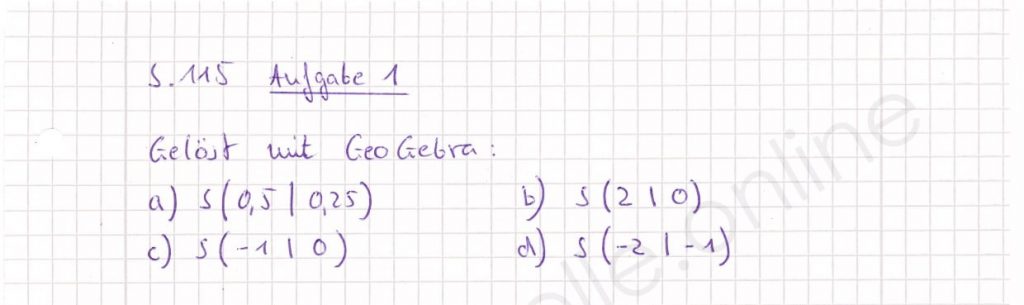 S. 115 Aufgabe 1
Gelöst mit GeoGebra:
a) S(0,5 | 0,25) b) S(2 | 0)
c) S(-1 | 0) d) S(-2 | -1)
olle.online